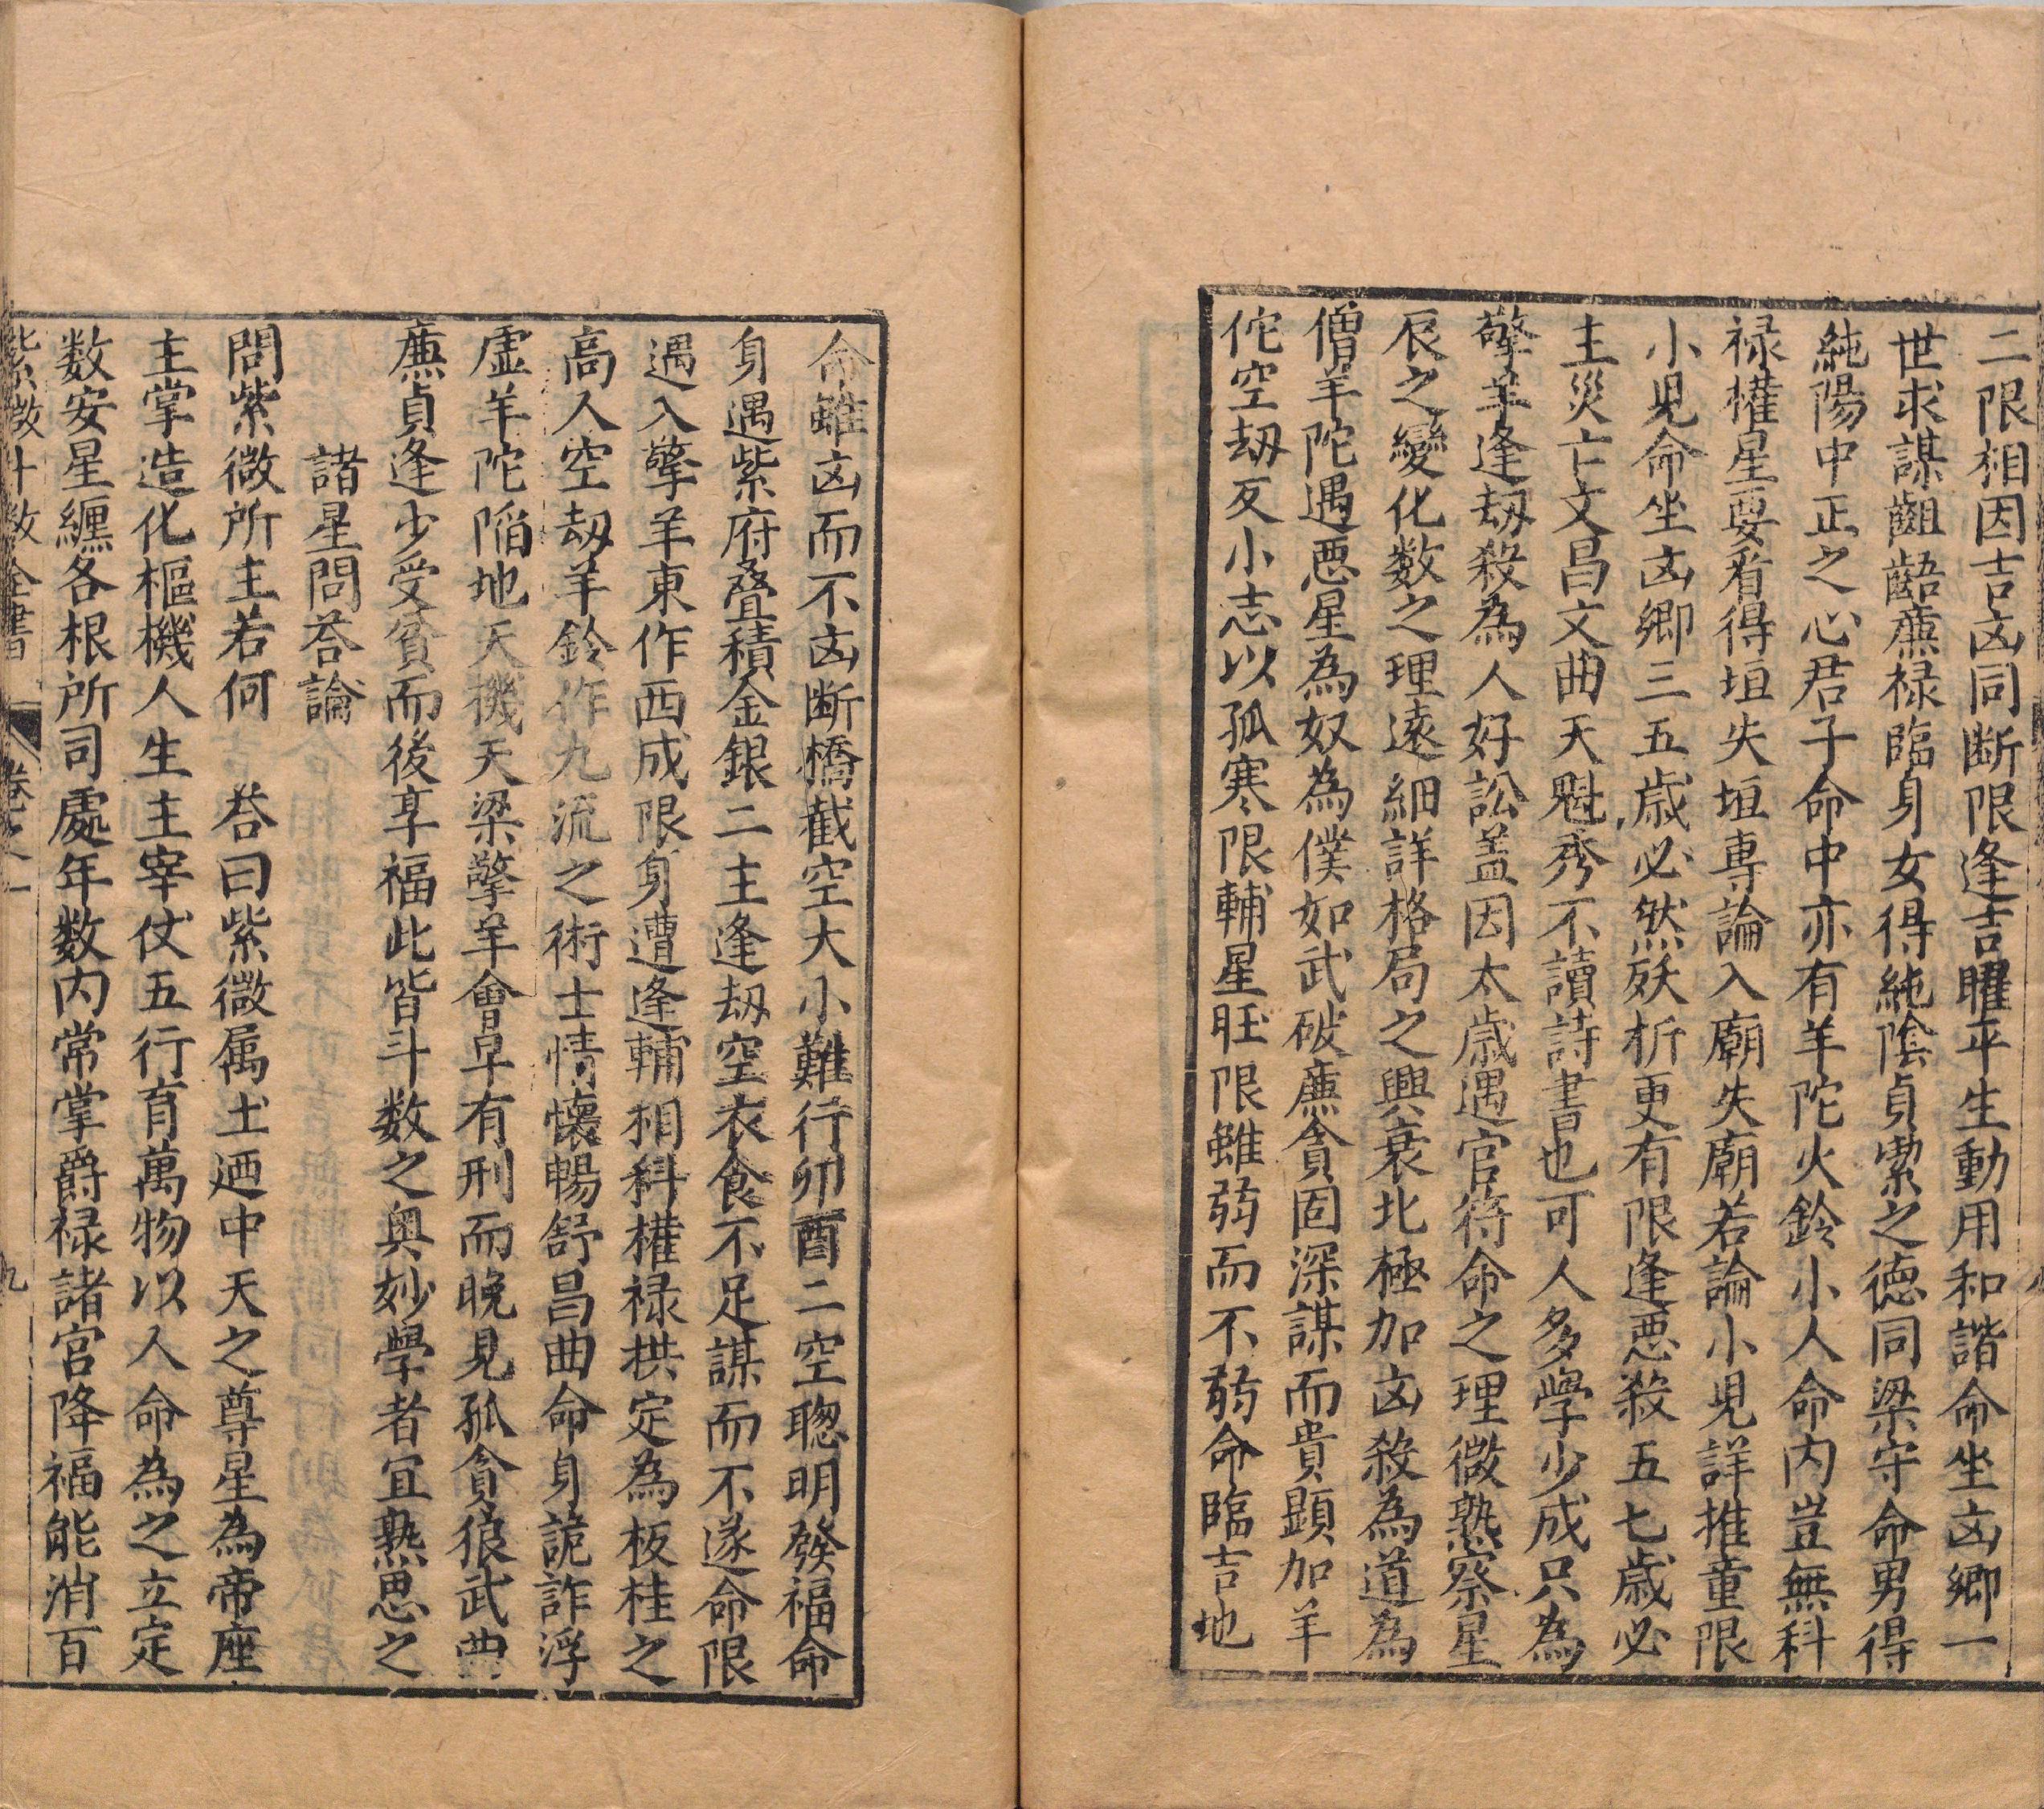 二限相因吉凶同断限逢吉曜平生動用和諧命坐凶鄉一
世求謀齟齬廉禄臨身女得純陰貞潔之德同梁守命男得
純陽中正之心君子命中亦有羊陀火鈴小人命内豈無科
禄權星要看得垣失垣專論入廟失廟若論小児詳推童限
小児命坐凶鄉三五歳必然殀折更有限逢悪殺五七歳必
主災亡文昌文曲天魁秀不讀詩書也可人多學少成只為
擎羊逢刼殺為人好訟盖因太歳遇官符命之理微熟察星
辰之變化数之理遠細詳格局之興衰北極加凶殺為道為
僧羊陀遇悪星為奴為僕如武破廉貪固深謀而貴顕加羊
佗空刼反小志以孤寒限輔星旺限雖弱而不弱命臨吉地
命雖凶而不凶断橋截空大小難行卯酉二空聰明發福命
身遇紫府叠積金銀二主逢刼空衣食不足謀而不遂命限
遇入擎羊東作西成限身遭逢輔相科權禄拱定為板桂之
高人空刼羊鈴作九流之術士情懷暢舒昌曲命身詭詐浮
虛羊陀陷地天機天梁擎羊會早有刑而晚見孤貪狼武曲
廉貞逢少受貧而後享福此皆斗数之奥妙學者宜熟思之
諸星問荅論
問紫微所主若何　荅曰紫微属土廼中天之尊星為帝座
主掌造化樞機人生主宰仗五行育萬物以人命為之立定
数安星纏各根所司處年数内常掌爵禄諸宮降福能消百
紫微斗数全書　卷之一　九